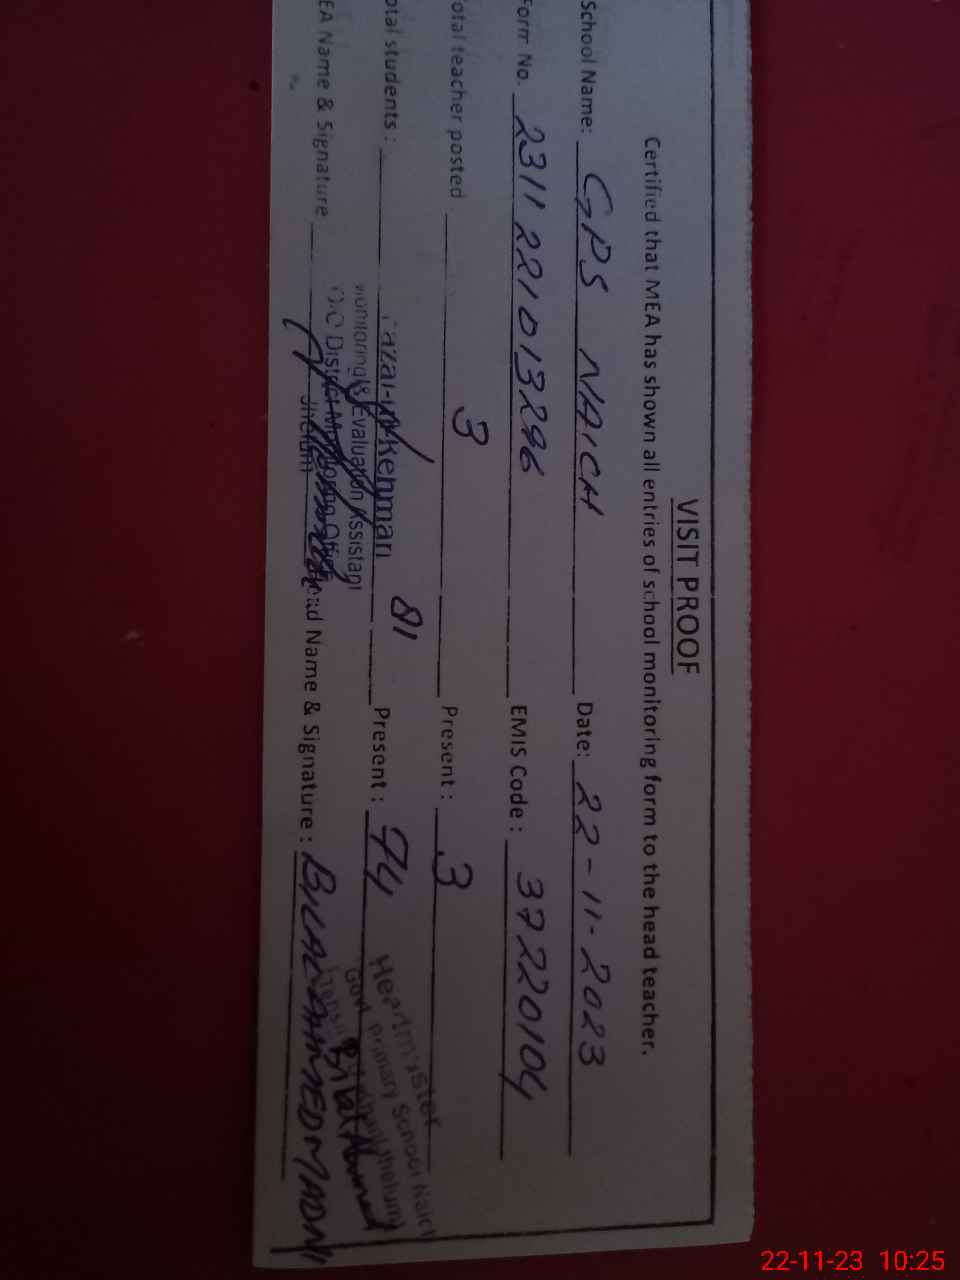 VISIT PROOF
Certified that MEA has shown all entries of school monitoring form to the head teacher.
School Name: GPS NAICH Date: 22-11-2023
Form No. 2311221013296 EMIS Code: 37220104
otal teacher posted 3 Present: 3
otal students: 81 Present: 74
EA Name & Signature Head Name & Signature: BILAL AHMED MADNI
Monitoring & Evaluation Assistant
O/O District Monitoring Officer
Jhelum
Headmaster
Govt. Primary School
Bilal Ahmed
22-11-23 10:25